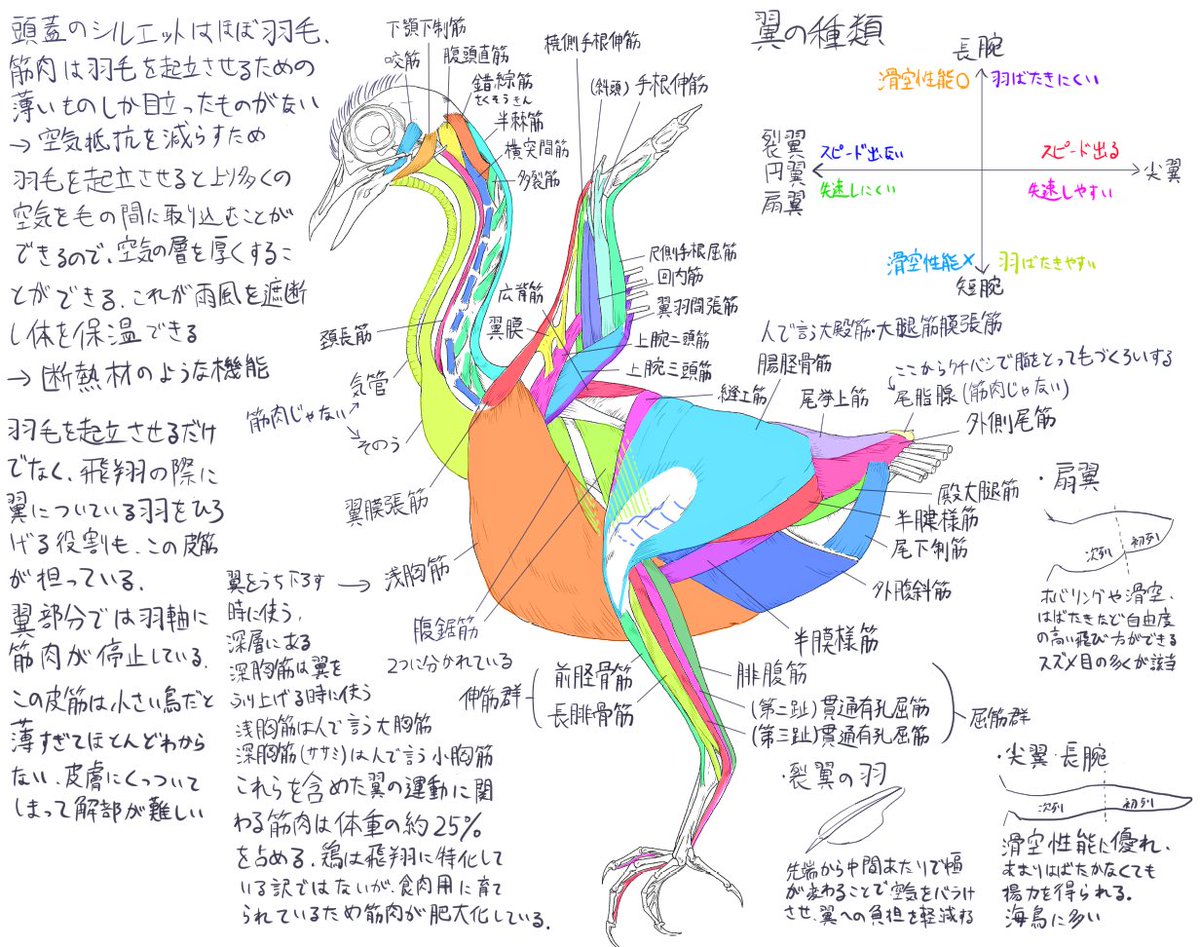 頭蓋のシルエットはほぼ羽毛、
筋肉は羽毛を起立させるための
薄いものしか目立ったものがない
→空気抵抗を減らすため
羽毛を起立させるとより多くの
空気を毛の間に取り込むことが
できるので、空気の層を厚くするこ
とができる、これが雨風を遮断
し体を保温できる
→断熱材のような機能
羽毛を起立させるだけ
でなく、飛翔の際に
翼についている羽をひろ
げる役割も、この皮筋
が担っている。
翼部分では羽軸に
筋肉が停止している。
この皮筋は小さい鳥だと
薄すぎてほとんどわから
ない、皮膚にくっついて
しまって解部が難しい
下顎下制筋
咬筋
腹頭直筋
錯綜筋
さくそうきん
半棘筋
横突間筋
多裂筋
橈側手根伸筋
(斜頭)手根伸筋
尺側手根屈筋
回内筋
翼羽間張筋
上腕二頭筋
上腕三頭筋
広背筋
翼膜
頚長筋
気管
筋肉じゃない
そのう
翼膜張筋
縫工筋
人で言う大殿筋・大腿筋膜張筋
腸脛骨筋
尾挙上筋
ここからクチバシで脂をとって毛づくろいする
尾脂腺(筋肉じゃない)
外側尾筋
殿大腿筋
半腱様筋
尾下制筋
外腹斜筋
半膜様筋
翼をうち下ろす
時に使う。
→浅胸筋
深層にある
深胸筋は翼を
ふり上げる時に使う
浅胸筋は人で言う大胸筋
深胸筋(ササミ)は人で言う小胸筋
これらを含めた翼の運動に関
わる筋肉は体重の約25%
を占める、鶏は飛翔に特化して
いる訳ではないが、食肉用に育て
られているため筋肉が肥大化している。
腹鋸筋
2つに分かれている
伸筋群
前脛骨筋
長腓骨筋
腓腹筋
(第二趾)貫通有孔屈筋
(第三趾)貫通有孔屈筋
屈筋群
翼の種類
長腕
滑空性能○
羽ばたきにくい
裂翼
円翼
扇翼
スピード出ない
失速しにくい
スピード出る
失速しやすい
尖翼
滑空性能×
羽ばたきやすい
短腕
・扇翼
次列
初列
ホバリングや滑空、
はばたきなど自由度
の高い飛び方ができる
スズメ目の多くが該当
・裂翼の羽
先端から中間あたりで幅
が変わることで空気をバラけ
させ、翼への負担を軽減する
・尖翼・長腕
次列
初列
滑空性能に優れ、
あまりはばたかなくても
揚力を得られる。
海鳥に多い